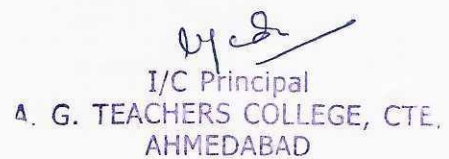 I/C Principal
A. G. TEACHERS COLLEGE, CTE.
AHMEDABAD